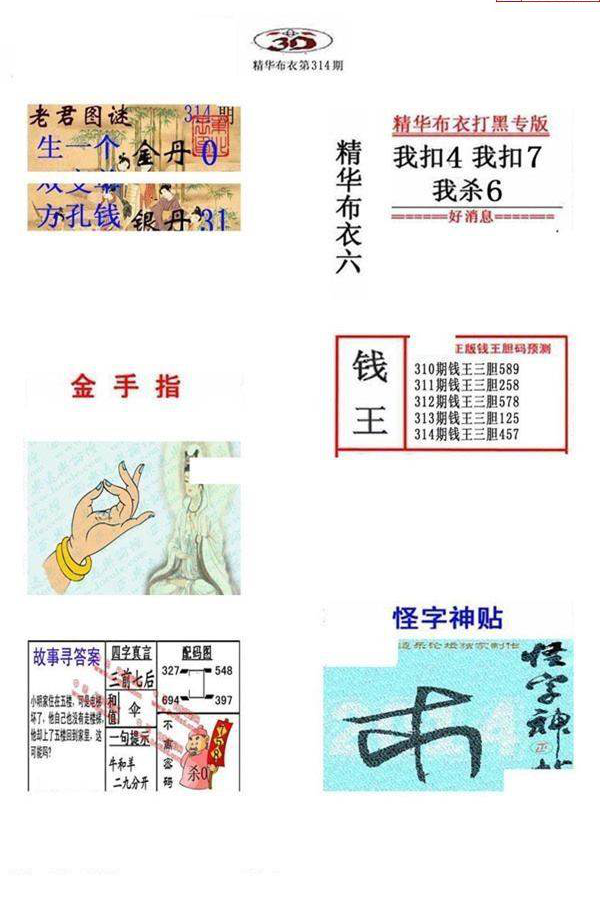 3D
精华布衣第314期
老君图谜
314期
生一个
金丹0
方孔钱
银丹
31
精华布衣六
精华布衣打黑专版
我扣4 我扣7
我杀6
======好消息=======
金手指
钱王
正版钱王胆码预测
310期钱王三胆589
311期钱王三胆258
312期钱王三胆578
313期钱王三胆125
314期钱王三胆457
故事寻答案
小明家住在五楼,可是电梯
坏了,他自己也没有走楼梯,
他却上了五楼回到家里,这
可能吗?
四字真言
三前七后
和值
伞
一句提示
牛和羊
二九分开
配码图
327 548
694 397
不离密码
杀0
怪字神贴
怪字神帖